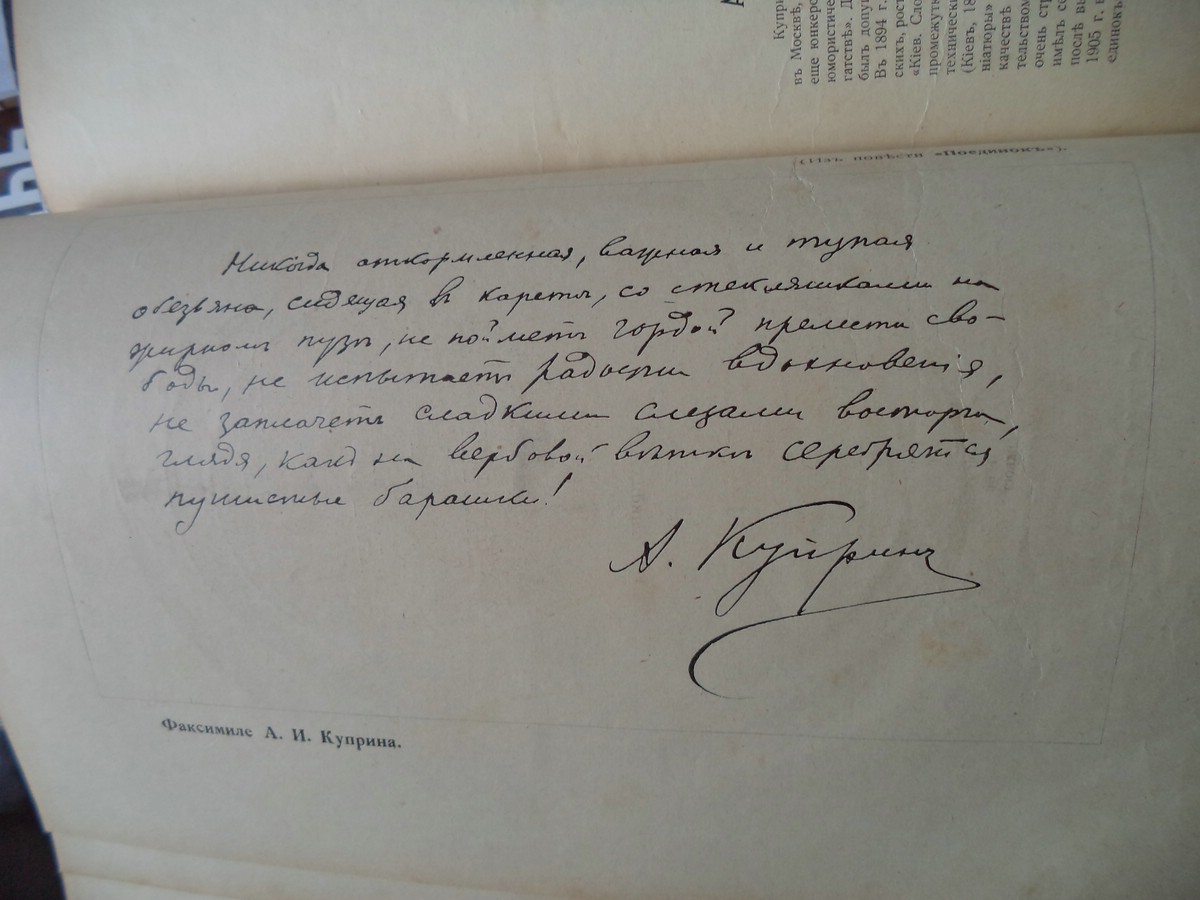 Купри
въ Москвѣ,
еще юнкеро
юмористиче
гатствѣ». Д
былъ допущ
Въ 1894 г.
скихъ, рост
«Кіев. Сло
промежутк
техническі
(Кіевъ, 18
ніатюры»
качествѣ
тельством
очень стр
имѣлъ со
послѣ вы
1905 г. в
единокъ
(Изъ повѣсти «Поединокъ»).
Никогда откормленная, важная и тупая
обезьяна, сидящая в каретѣ, со стекляшками на
жирномъ пузѣ, не пойметъ гордой прелести сво-
боды, не испытаетъ радости вдохновенія,
не заплачетъ сладкими слезами восторга,
глядя, какъ на вербовой вѣткѣ серебрятся
пушистые барашки!
А. Купринъ
Факсимиле А. И. Куприна.